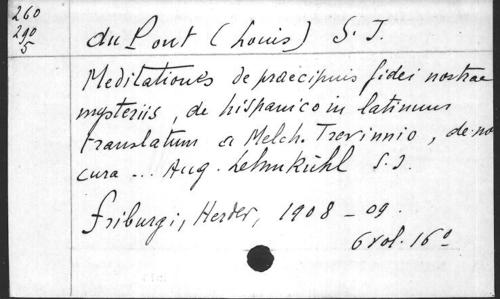 260
290
5
du Pont (Louis) S. J.
Meditationes de praecipuis fidei nostrae
mysteriis, de hispanico in latinum
translatum a Melch. Trevinnio, de no
cura ... Aug. Lehmkühl S. J.
Friburgi, Herder, 1908 - 09.
6 vol. 16°